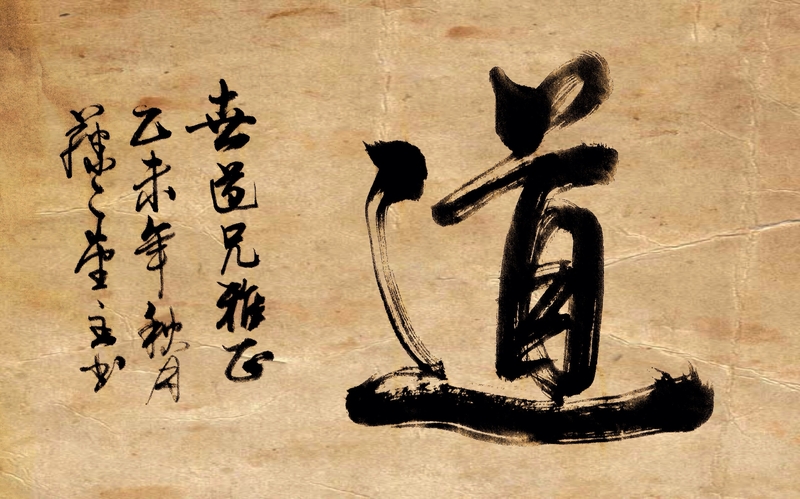 道
喜道兄雅正
乙未年秋月
堂主书